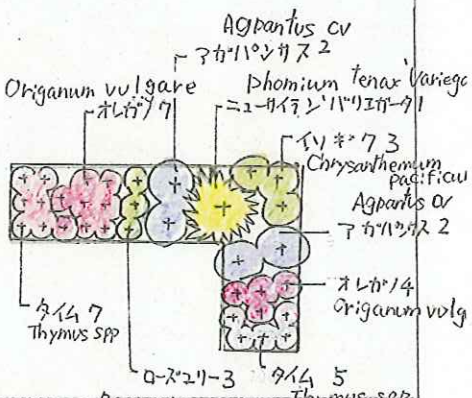 Agpantus cv
アガパンサス 2
Origanum vulgare
オレガノ 7
phomium tenax 'variega
ニューサイラン'バリエガータ'1
イソギク 3
Chrysanthemum
pacificu
Agpantus cv
アガパンサス 2
オレガノ4
Origanum vulg
タイム 7
Thymus spp
ローズマリー3
タイム 5
Thymus spp